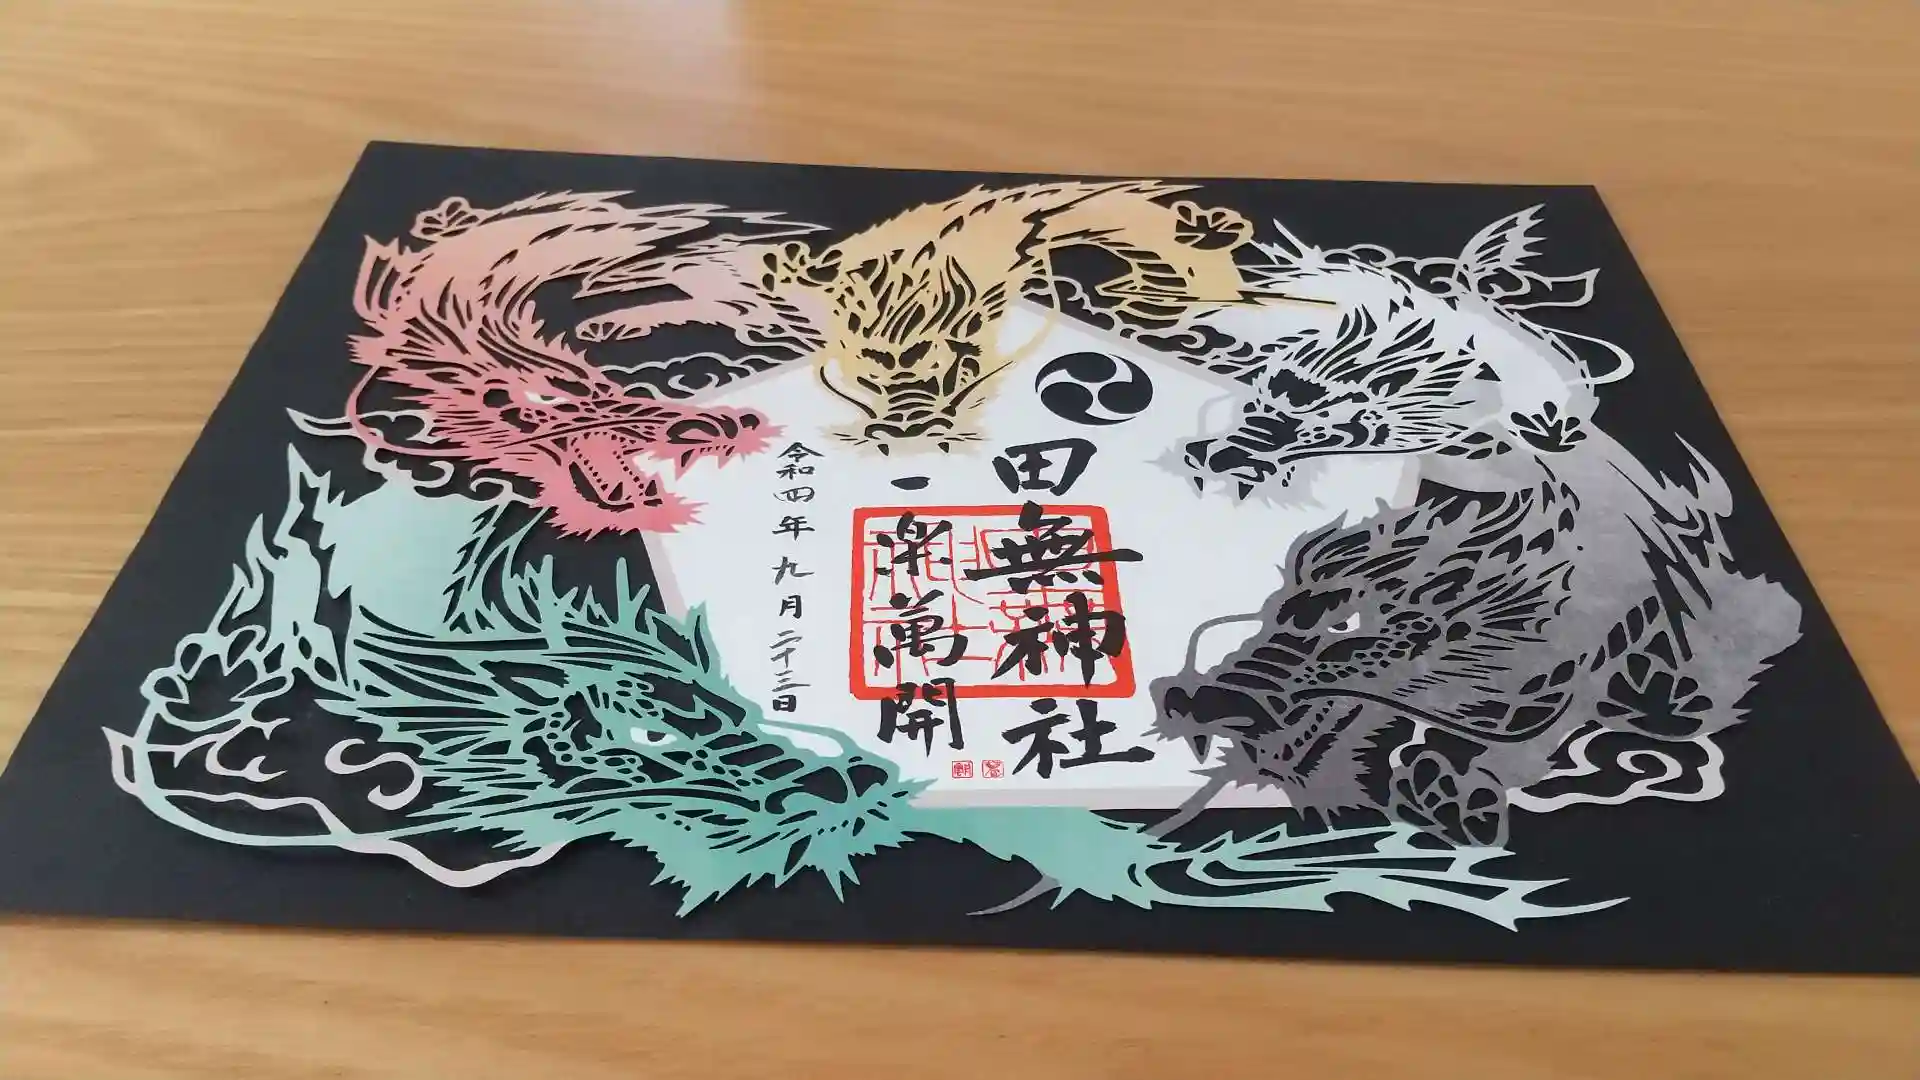 田無神社
一楽萬開
令和四年九月二十三日